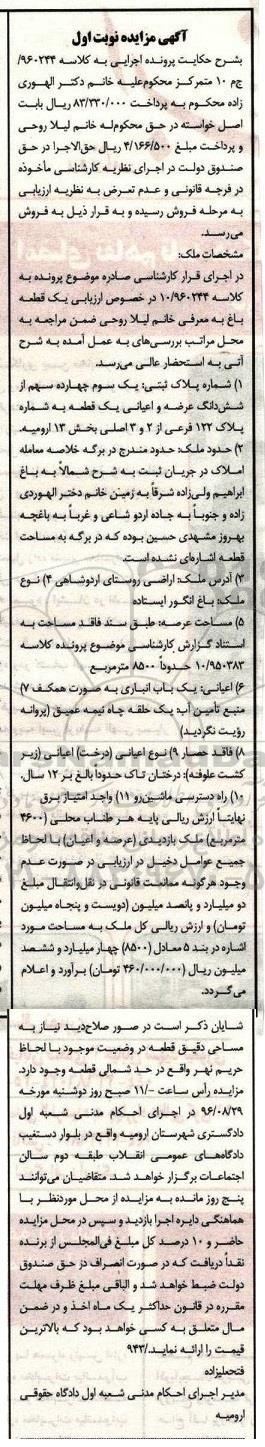 آگهی مزایده نوبت اول
بشرح حکایت پرونده اجرایی به کلاسه ۹۶۰۲۴۴/
ج م ۱۰ متمرکز محکوم‌علیه خانم دکتر الهوری
زاده محکوم به پرداخت ۸۳/۳۳۰/۰۰۰ ریال بابت
اصل خواسته در حق محکوم‌له خانم لیلا روحی
و پرداخت مبلغ ۴/۱۶۶/۵۰۰ ریال حق‌الاجرا در حق
صندوق دولت در اجرای نظریه کارشناسی مأخوذه
در فرجه قانونی و عدم تعرض به نظریه ارزیابی
به مرحله فروش رسیده و به قرار ذیل به فروش
می‌رسد.
مشخصات ملک:
در اجرای قرار کارشناسی صادره موضوع پرونده به
کلاسه ۱۰/۹۶۰۲۴۴ در خصوص ارزیابی یک قطعه
باغ به معرفی خانم لیلا روحی ضمن مراجعه به
محل مراتب بررسی‌های به عمل آمده به شرح
آتی به استحضار عالی می‌رسد.
۱) شماره پلاک ثبتی: یک سوم چهارده سهم از
شش‌دانگ عرصه و اعیانی یک قطعه به شماره
پلاک ۱۲۲ فرعی از ۲ و ۳ اصلی بخش ۱۳ ارومیه.
۲) حدود ملک: حدود مندرج در برگه خلاصه معامله
املاک در جریان ثبت به شرح شمالاً به باغ
ابراهیم ولی‌زاده شرقاً به زمین خانم دختر الهوردی
زاده و جنوباً به جاده اردو شاعی و غرباً به باغچه
بهروز مشهدی حسین بوده که در برگه به مساحت
قطعه اشاره‌ای نشده است.
۳) آدرس ملک: اراضی روستای اردوشاهی ۴) نوع
ملک: باغ انگور ایستاده
۵) مساحت عرصه: طبق سند فاقد مساحت به
استناد گزارش کارشناسی موضوع پرونده کلاسه
۱۰/۹۵۰۳۸۳ حدوداً ۸۵۰۰ مترمربع
۶) اعیانی: یک باب انباری به صورت همکف ۷)
منبع تأمین آب: یک حلقه چاه نیمه عمیق (پروانه
رؤیت نگردید)
۸) فاقد حصار ۹) نوع اعیانی (درخت) اعیانی (زیر
کشت علوفه): درختان تاک حدوداً بالغ بر ۱۲ سال.
۱۰) راه دسترسی ماشین‌رو ۱۱) واجد امتیاز برق
نهایتاً ارزش ریالی پایه هر طناب محلی (۴۶۰۰
مترمربع) ملک بازدیدی (عرصه و اعیان) با لحاظ
جمیع عوامل دخیل در ارزیابی در صورت عدم
وجود هرگونه ممانعت قانونی در نقل‌وانتقال مبلغ
دو میلیارد و پانصد میلیون (دویست و پنجاه میلیون
تومان) و ارزش ریالی کل ملک به مساحت مورد
اشاره در بند ۵ معادل (۸۵۰۰) چهار میلیارد و ششصد
میلیون ریال (۴۶۰/۰۰۰/۰۰۰ تومان) برآورد و اعلام
می‌گردد.
شایان ذکر است در صور صلاحدید نیاز به
مساحی دقیق قطعه در وضعیت موجود با لحاظ
حریم نهر واقع در حد شمالی قطعه وجود دارد.
مزایده رأس ساعت -/۱۱ صبح روز دوشنبه مورخه
۹۶/۰۸/۲۹ در اجرای احکام مدنی شعبه اول
دادگستری شهرستان ارومیه واقع در بلوار دستغیب
دادگاه‌های عمومی انقلاب طبقه دوم سالن
اجتماعات برگزار خواهد شد. متقاضیان می‌توانند
پنج روز مانده به مزایده از محل موردنظر با
هماهنگی دایره اجرا بازدید و سپس در محل مزایده
حاضر و ۱۰ درصد کل مبلغ فی‌المجلس از برنده
نقداً دریافت که در صورت انصراف در حق صندوق
دولت ضبط خواهد شد و الباقی مبلغ ظرف مهلت
مقرره در قانون حداکثر یک ماه اخذ و در ضمن
مال متعلق به کسی خواهد بود که بالاترین
قیمت را ارائه نماید./۹۴۳
فتحعلیزاده
مدیر اجرای احکام مدنی شعبه اول دادگاه حقوقی
ارومیه